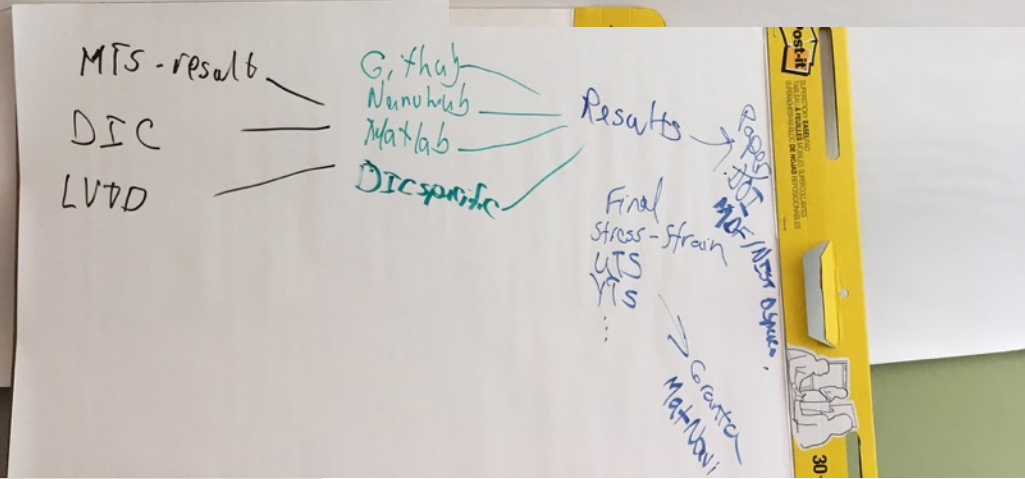 MTS-result
DIC
LVDD
Github
Nanohub
Matlab
DIC specific
Results
Final
Stress-Strain
UTS
YTS
...
Papers
DOI
MDF/NIST DSpace.
Granta
MatNavi
Post-it
SUPERSTICKY EASEL PAD
30